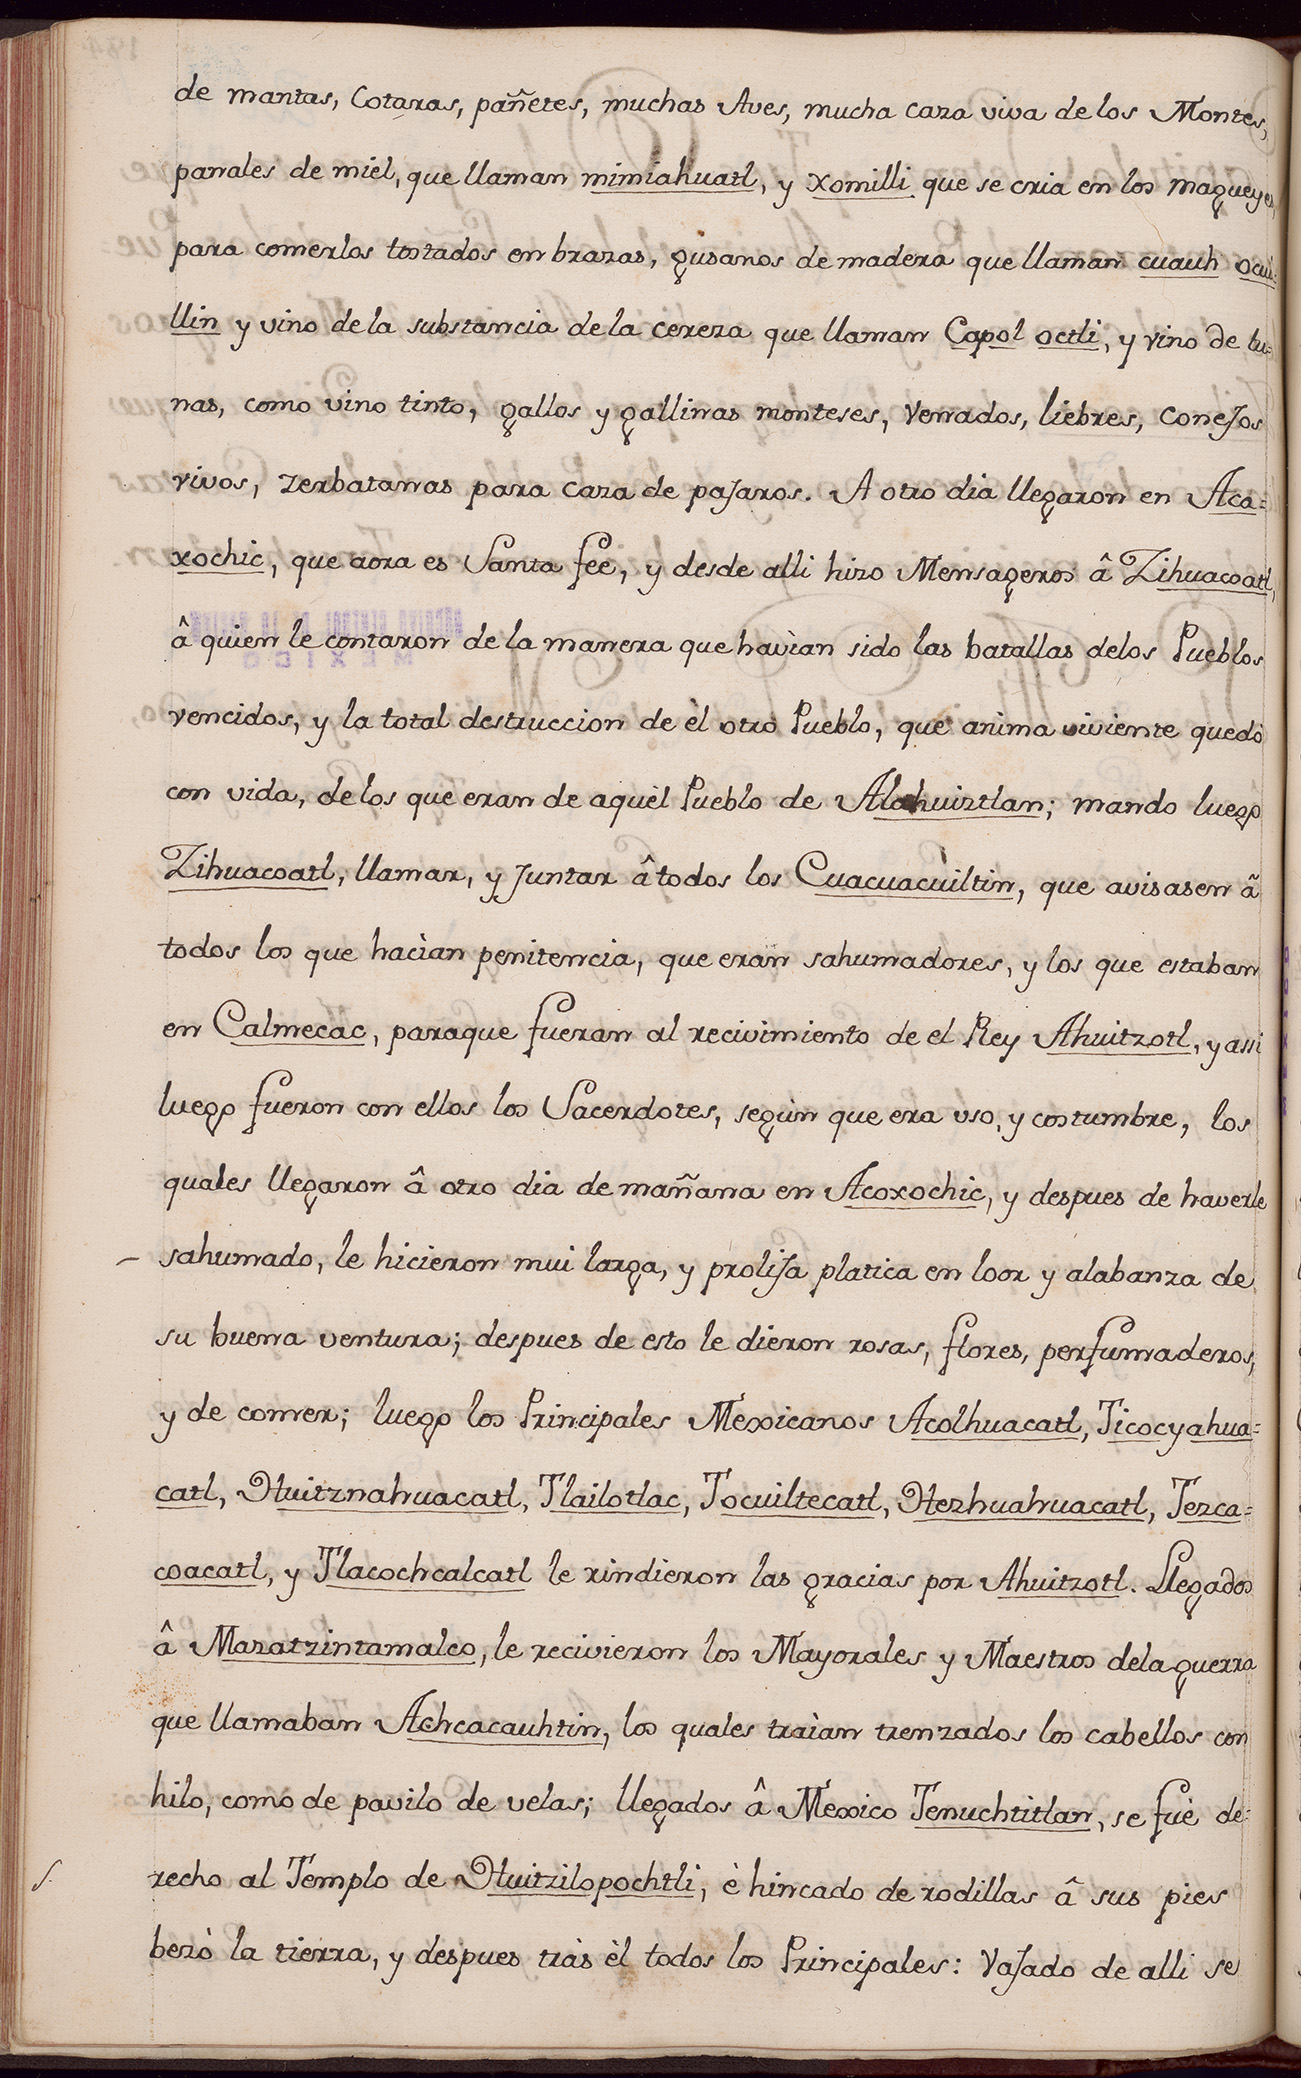 de mantas, Cotaras, pañetes, muchas Aves, mucha caza viva de los Montes,
panales de miel, que llaman mimiahuatl, y xomilli que se cria en los magueyes,
para comerlos tostados en brazas, gusanos de madera que llaman cuauh ocui=
llin y vino de la substancia de la cereza que llaman Capol octli, y vino de tu=
nas, como vino tinto, gallos y gallinas monteses, Venados, liebres, conejos
vivos, zerbatanas para caza de pajaros. A otro dia llegaron en Aca=
xochic, que aora es Santa fee, y desde alli hizo Mensageros â Zihuacoatl,
â quien le contaron de la manera que havìan sido las batallas delos Pueblos
vencidos, y la total destruccion de èl otro Pueblo, que anima viviente quedò
con vida, de los que eran de aquèl Pueblo de Alahuiztlan; mando luego
Zihuacoatl, llamar, y juntar â todos los Cuacuacuiltin, que avisasen â
todos los que hacìan penitencia, que eran sahumadores, y los que estaban
en Calmecac, paraque fueran al recivimiento de el Rey Ahuitzotl, y assi
luego fueron con ellos los Sacerdotes, segùn que era uso, y costumbre, los
quales llegaron â otro dia de mañana en Acoxochic, y despues de haverle
sahumado, le hicieron mui larga, y prolija platica en loor y alabanza de
su buena ventura; despues de esto le dieron rosas, flores, perfumaderos,
y de comer; luego los Principales Mexicanos Acolhuacatl, Ticocyahua=
catl, Huitznahuacatl, Tlailotlac, Tocuiltecatl, Hezhuahuacatl, Tezca=
coacatl, y Tlacochcalcatl le rindieron las gracias por Ahuitzotl. Llegados
â Mazatzintamalco, le recivieron los Mayorales y Maestros dela guerra
que llamaban Achcacauhtin, los quales traìan trenzados los cabellos con
hilo, como de pavilo de velas; llegados â Mexico Tenuchtitlan, se fuè de=
recho al Templo de Huitzilopochtli, è hincado de rodillas â sus pies
bezò la tierra, y despues tràs èl todos los Principales: Vajado de alli se